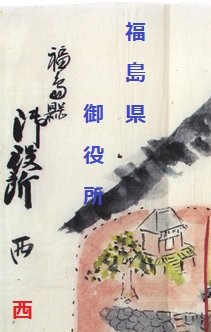 福島県
御役所
福島縣
御役所
西
西